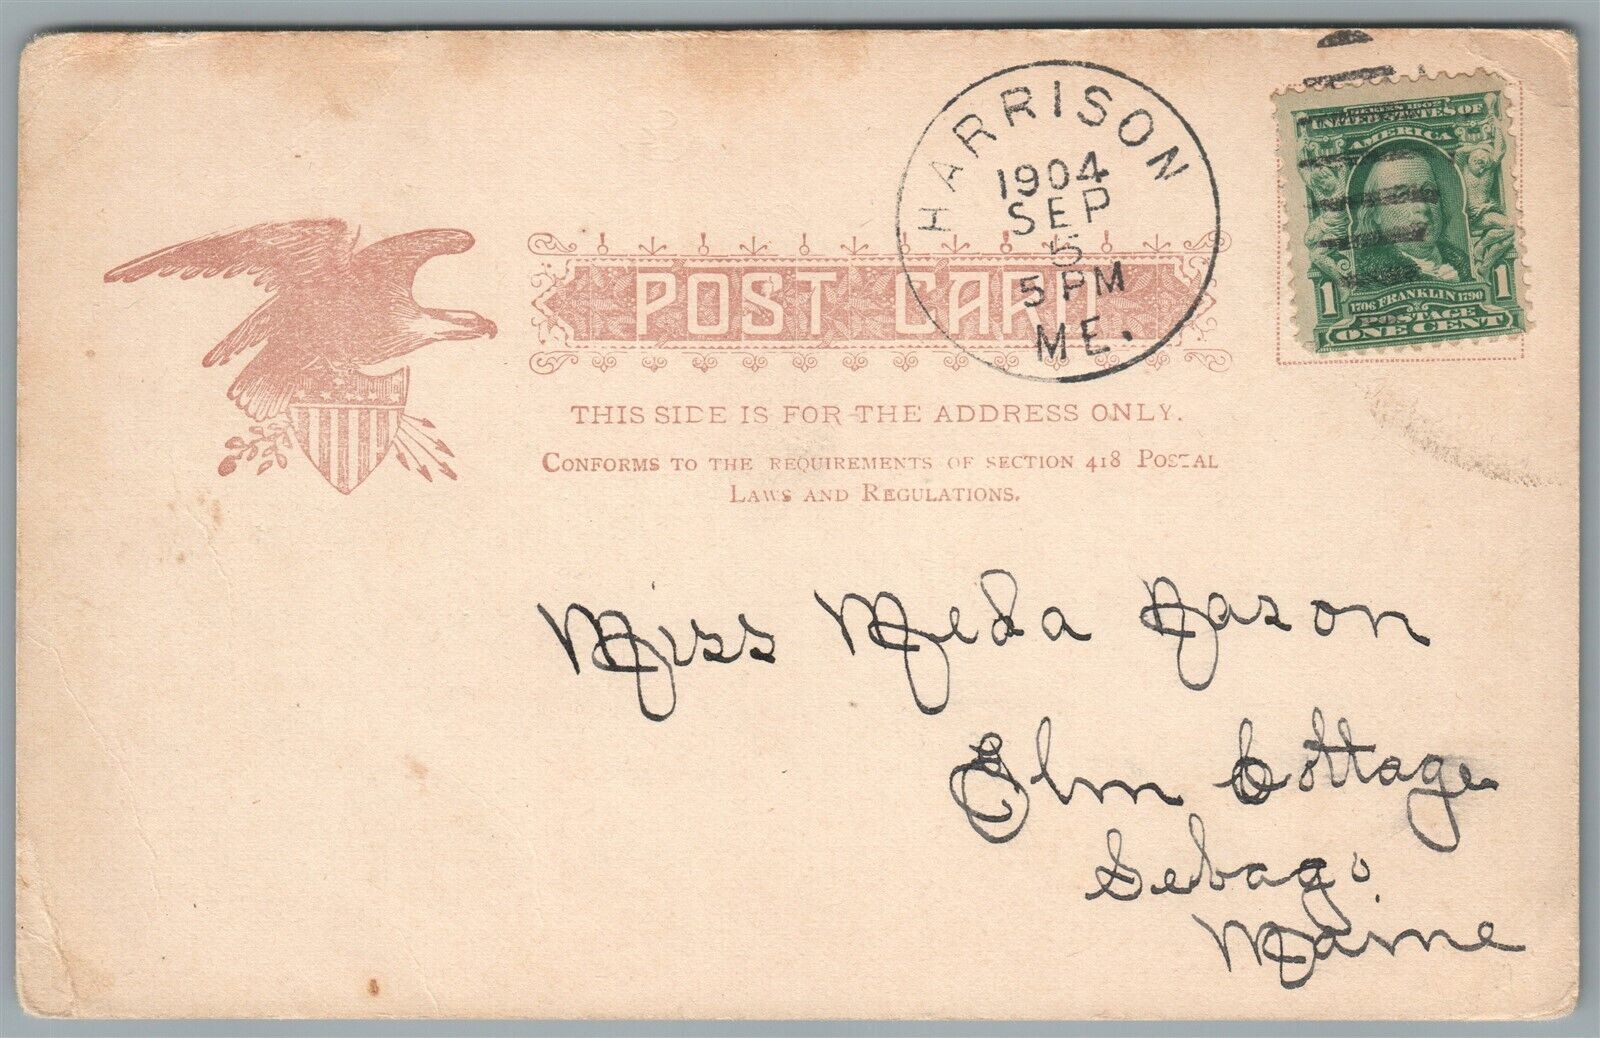 HARRISON
1904
SEP
5
5 PM
ME.
SERIES 1902
UNITED STATES OF
AMERICA
1706 FRANKLIN 1790
1 POSTAGE 1
ONE CENT
POST CARD
THIS SIDE IS FOR THE ADDRESS ONLY.
CONFORMS TO THE REQUIREMENTS OF SECTION 418 POSTAL
LAWS AND REGULATIONS.
Miss Meda Nason
Elm Cottage
Sebago.
Maine